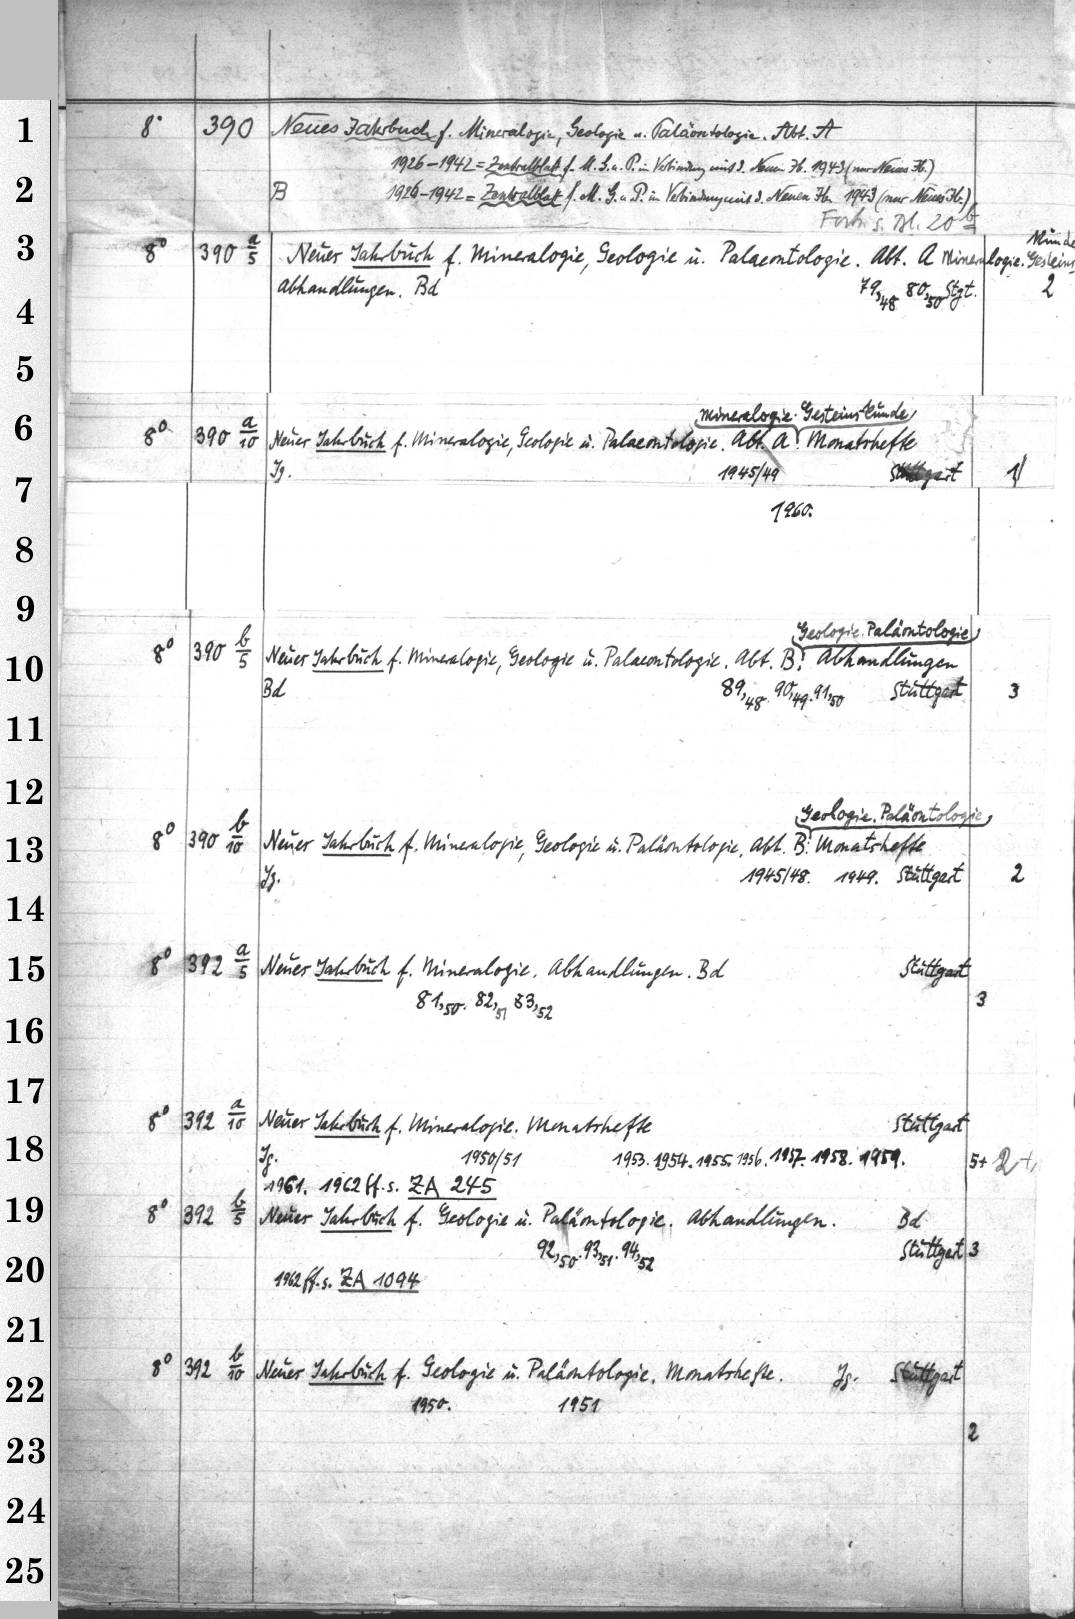 1 8° 390 Neues Jahrbuch f. Mineralogie, Geologie u. Paläontologie. Abt. A
1926–1942 = Zentralblatt f. M. G. u. P. in Verbindung mit d. Neuen Jb. 1943 (nur Neues Jb.)
2 B 1926–1942 = Zentralblatt f. M. G. u. P. in Verbindung mit d. Neuen Jb. 1943 (nur Neues Jb.)
Forts. s. Bl. 20 b
3 8° 390 a/5 Neues Jahrbuch f. Mineralogie, Geologie u. Palaeontologie. Abt. A Mineralogie. Gesteins
Abhandlungen. Bd 79,48 80,50 Stgt. 2
4
5
Mineralogie. Gesteinskunde
6 8° 390 a/10 Neues Jahrbuch f. Mineralogie, Geologie u. Palaeontologie. Abt. A Monatshefte
Jg. 1945/49 Stuttgart 1
7
1960.
8
9
Geologie. Paläontologie
10 8° 390 b/5 Neues Jahrbuch f. Mineralogie, Geologie u. Palaeontologie. Abt. B: Abhandlungen
Bd 89,48. 90,49. 91,50 Stuttgart 3
11
12
Geologie. Paläontologie
13 8° 390 b/10 Neues Jahrbuch f. Mineralogie, Geologie u. Paläontologie. Abt. B: Monatshefte
Jg. 1945/48. 1949. Stuttgart 2
14
15 8° 392 a/5 Neues Jahrbuch f. Mineralogie. Abhandlungen. Bd Stuttgart
81,50. 82,51 83,52 3
16
17
8° 392 a/10 Neues Jahrbuch f. Mineralogie. Monatshefte Stuttgart
18 Jg. 1950/51 1953. 1954. 1955. 1956. 1957. 1958. 1959. 5+ 2+
1961. 1962 ff. s. ZA 245
19 8° 392 b/5 Neues Jahrbuch f. Geologie u. Paläontologie. Abhandlungen. Bd
92,50. 93,51. 94,52 Stuttgart 3
20 1962 ff. s. ZA 1094
21
22 8° 392 b/10 Neues Jahrbuch f. Geologie u. Paläontologie. Monatshefte. Jg. Stuttgart
1950. 1951
2
23
24
25